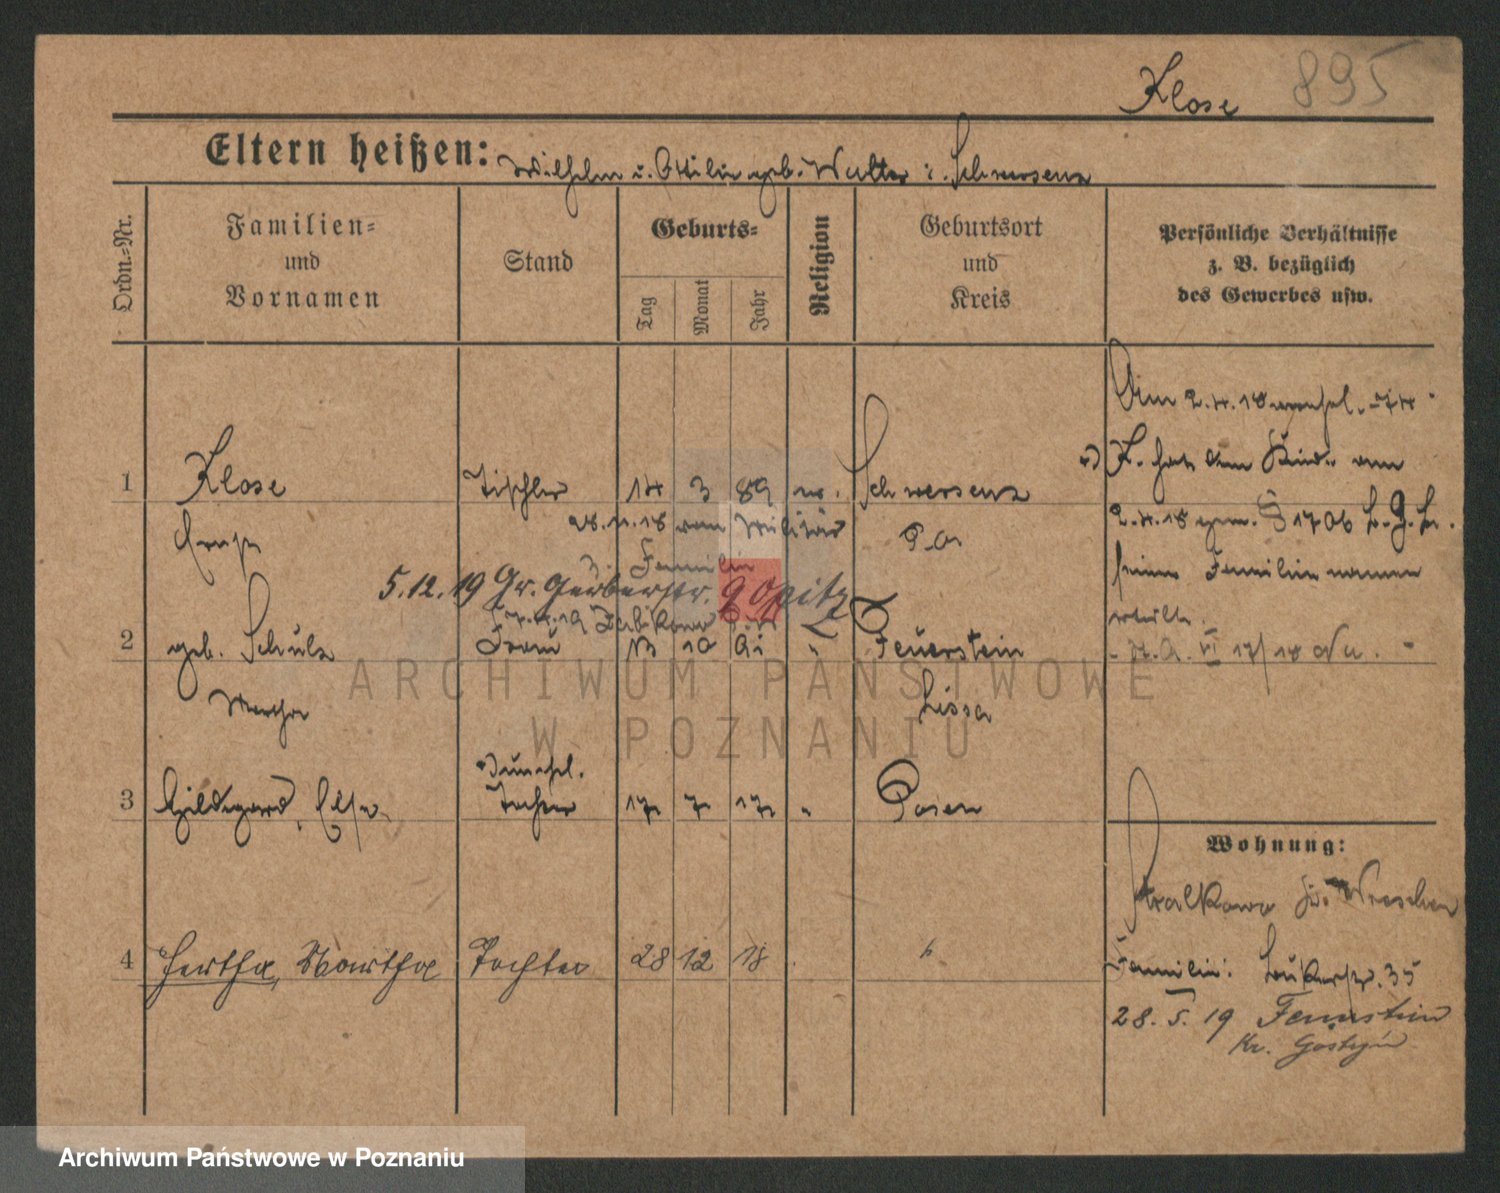 Klose 895
Eltern heißen: Wilhelm u. Ottilie geb. Walter i. Schwersenz
Ordn.-Nr.
Familien-
und
Vornamen
Stand
Geburts-
Tag
Monat
Jahr
Religion
Geburtsort
und
Kreis
Persönliche Verhältnisse
z. B. bezüglich
des Gewerbes usw.
Am 2.4.18
1 Klose Tischler 14 3 89 ev. Schwersenz
K. hat dem Kinde am
28.11.18 vom Militär
2.4.18 gem. § 1706 B.G.B.
Ernst P.O.
z. Familie
seinen Familiennamen
5.12.19 Gr. Gerberstr. 9 Opitz
erteilt.
2 geb. Schulz Frau 10 " Feuerstein
Martha Lissa
3 Hildegard, Else Tochter 17 7 17 " Posen
Wohnung:
Stralkowo Kr. Wreschen
4 Hertha, Martha Tochter 28 12 18 "
Familie: Bukerstr. 35
28.5.19 Feuerstein
Kr. Gostyń
ARCHIWUM PAŃSTWOWE
W POZNANIU
Archiwum Państwowe w Poznaniu